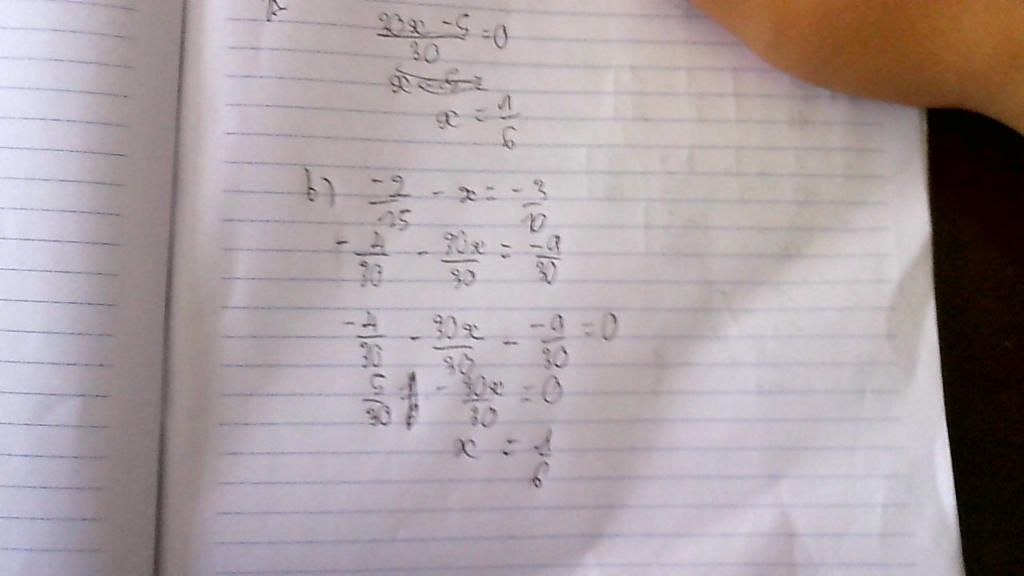 30x - 5 / 30 = 0
x = 1/6
b) -2/15 - x = -3/10
-4/30 - 30x/30 = -9/30
-4/30 - 30x/30 - -9/30 = 0
5/30 - 30x/30 = 0
x = 1/6